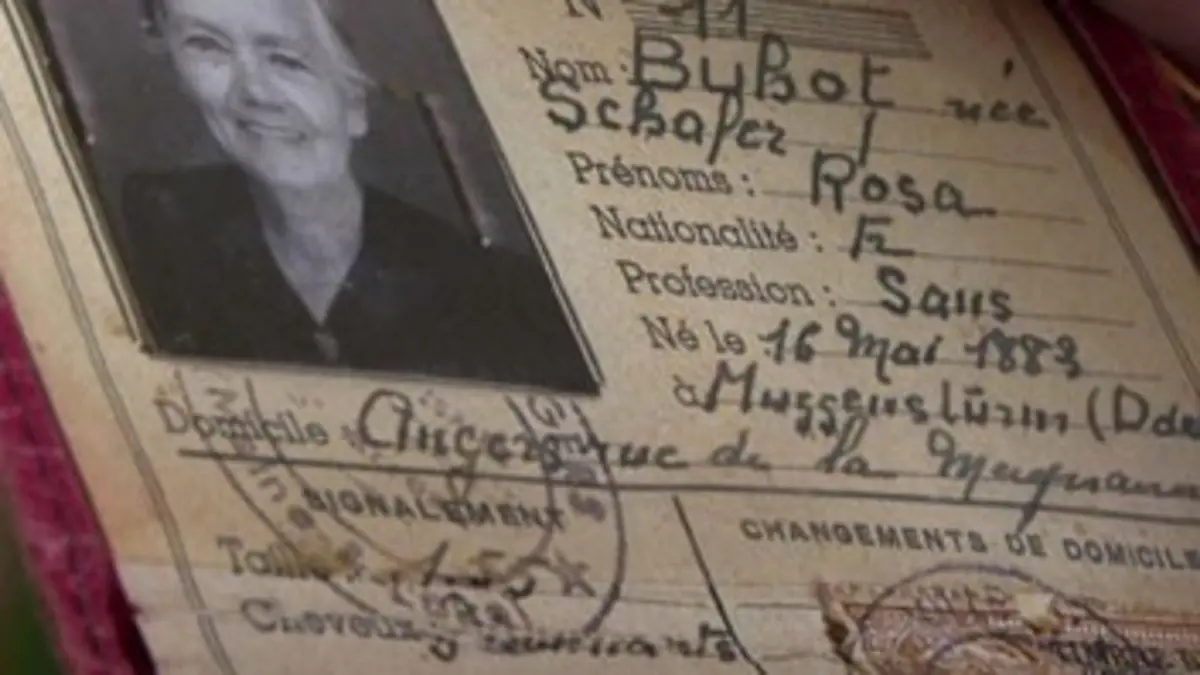 N° 11
Nom : Bybot née
Schafer
Prénoms : Rosa
Nationalité : Fr
Profession : Sans
Né le 16 Mai 1883
à Muggensturm (Dde
Domicile : Angers rue de la
SIGNALEMENT
CHANGEMENTS DE DOMICILE
Taille : 1.55
Cheveux
TIMBRE